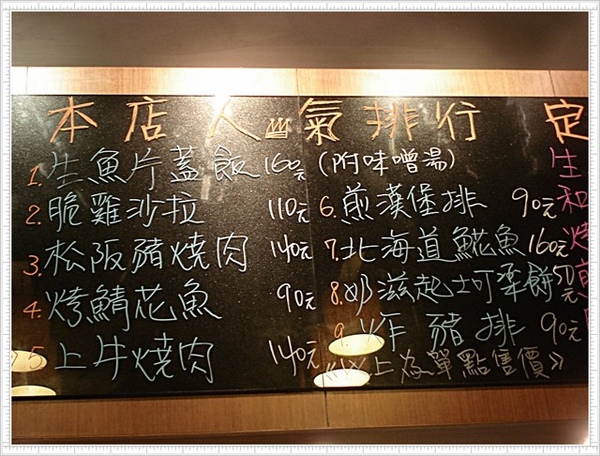 本店人氣排行
1. 生魚片蓋飯 160元 (附味噌湯)
2. 脆雞沙拉 110元
3. 松阪豬燒肉 140元
4. 烤鯖花魚 90元
5 上牛燒肉 140元
6. 煎漢堡排 90元
7. 北海道鯤魚 160元
8. 奶滋起士可栗餅 50元
9. 炸豬排 90元
《以上為單點售價》
定
生
和
燒
煎